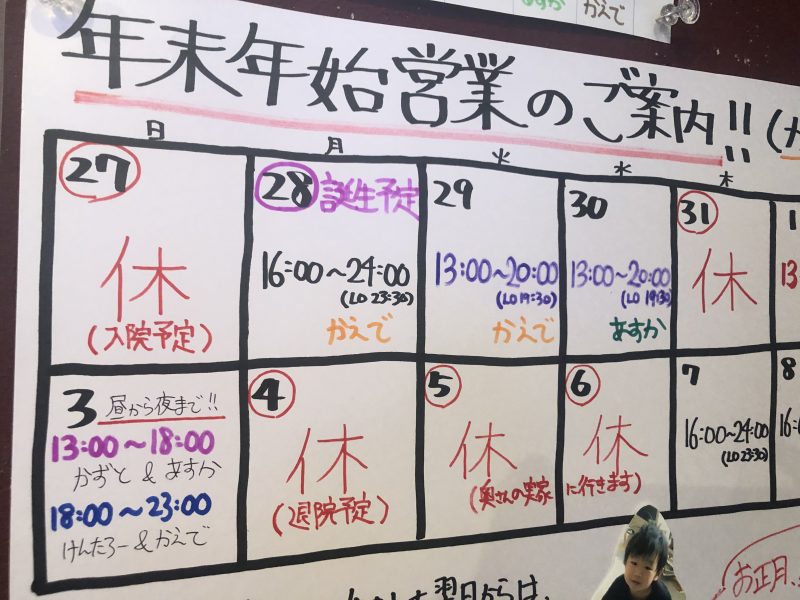 あすか
かえで
年末年始営業のご案内!!
日
月
火
水
木
27
休
(入院予定)
28 誕生予定
16:00~24:00
(LO 23:30)
かえで
29
13:00~20:00
(LO 19:30)
かえで
30
13:00~20:00
(LO 19:30)
あすか
31
休
1
13
3 昼から夜まで!!
13:00~18:00
かずと & あすか
18:00~23:00
けんたろー & かえで
4
休
(退院予定)
5
休
6
休
(奥さんの実家に行きます)
7
16:00~24:00
(LO 23:30)
8
16:
翌日からは、
お正月、